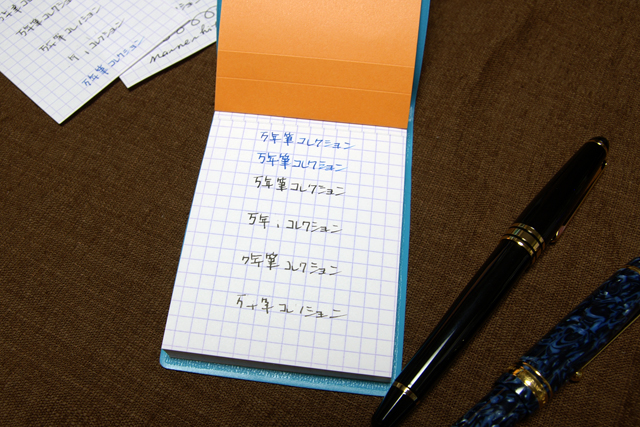 万年筆コレクション
万年筆コレクション
万年筆コレクション
万年、コレクション
万年筆コレクション
万年筆コレクション
コレクション
万年筆コレクション
万年筆コレクション
万年筆コレクション